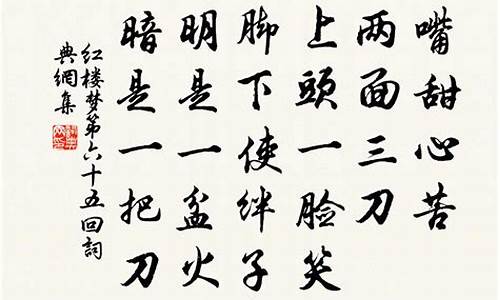 嘴甜心苦
两面三刀
上頭一脸笑
脚下使绊子
明是一盆火
暗是一把刀
红楼梦第六十五回詞
典網集